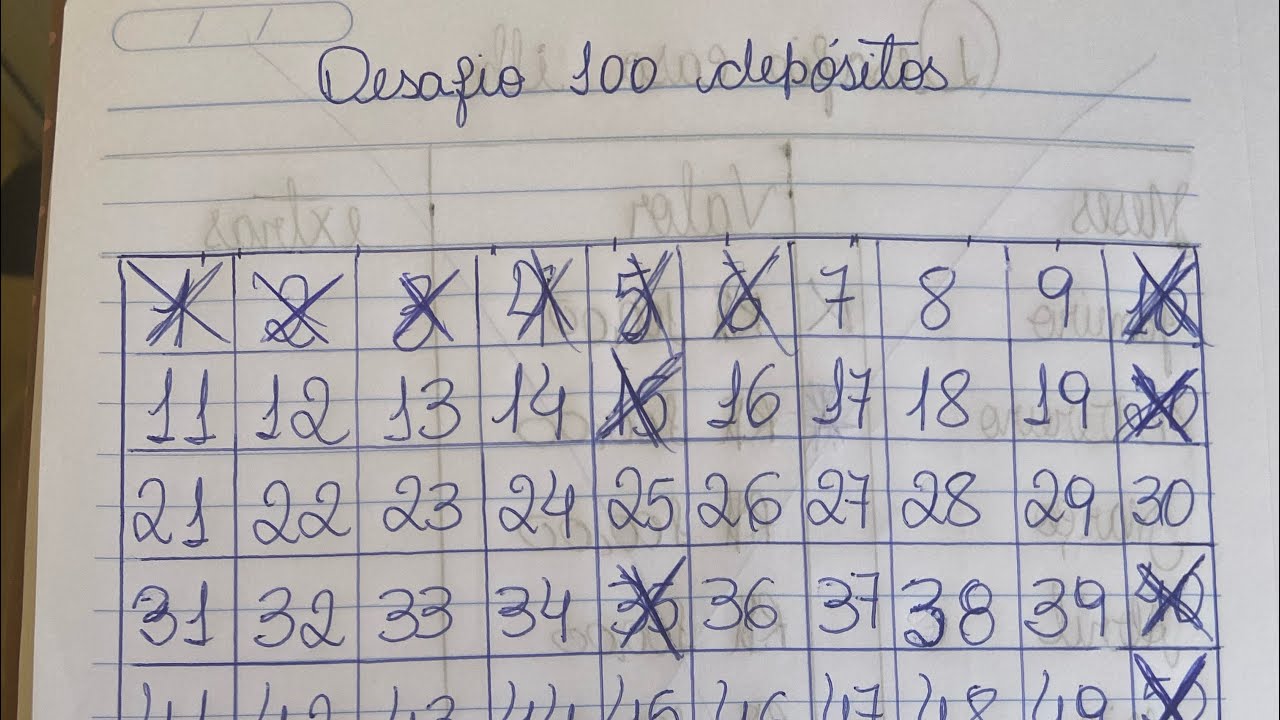 Desafio 100 depósitos
1 2 3 4 5 6 7 8 9 10
11 12 13 14 15 16 17 18 19 20
21 22 23 24 25 26 27 28 29 30
31 32 33 34 35 36 37 38 39 40
41 42 43 44 45 46 47 48 49 50